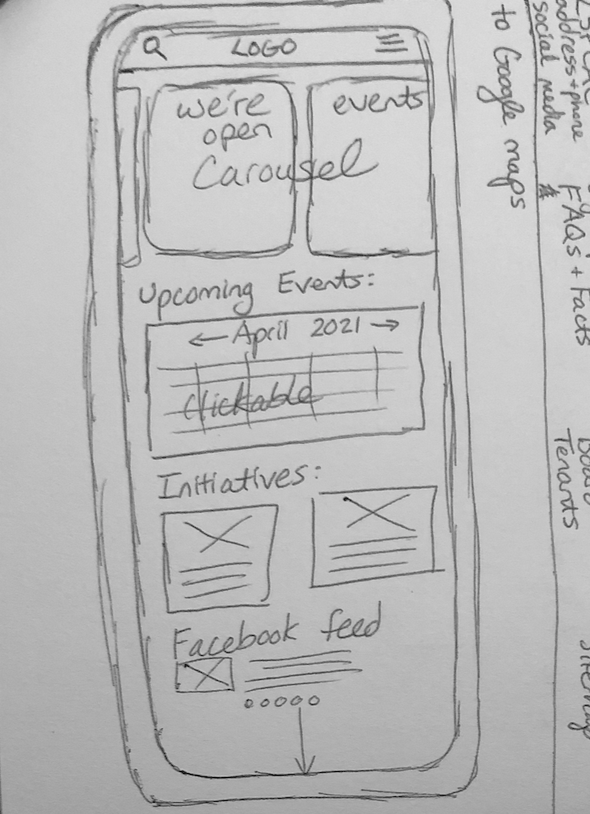 LOGO
we're
open
events
Carousel
Upcoming Events:
← April 2021 →
Clickable
Initiatives:
Facebook feed
to Google maps
address + phone
social media
FAQs + Facts
Tenants
Sitemap